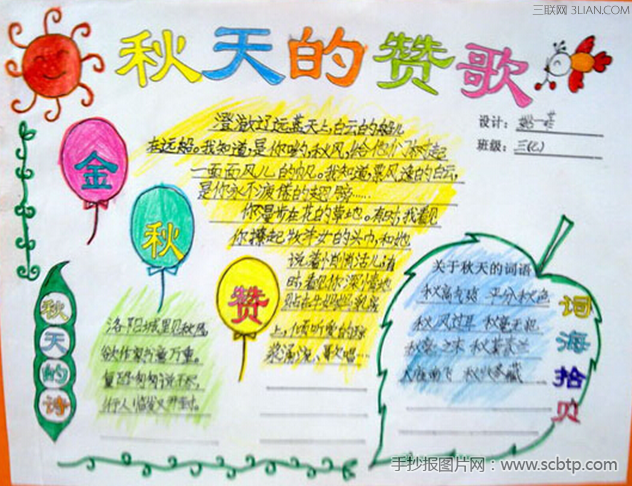 三联网 3LIAN.COM
秋天的赞歌
设计:
班级:三(乙)
澄澈辽远蓝天上,白云的帆儿
在远航。我知道,是你哟,秋风,给他们起
一面面风儿的帆。我知道,风速的白云,
是你永不疲倦的翅膀……
你漫步在花的草地。有时,我看见
你撩起牧羊女的头巾,和她
说着悄悄话儿,有
时看见你深情地
贴在牛妈妈乳房
上,倾听爱的琼
浆涌流、唱……
金
秋
赞
秋天的诗
洛阳城里见秋风,
欲作家书意万重。
复恐匆匆说不尽,
行人临发又开封。
关于秋天的词语
秋高气爽 平分秋色
秋风过耳 秋毫无犯
秋之末 秋菊春兰
大雁南飞 秋收冬藏
词海拾贝
手抄报图片网:www.scbtp.com